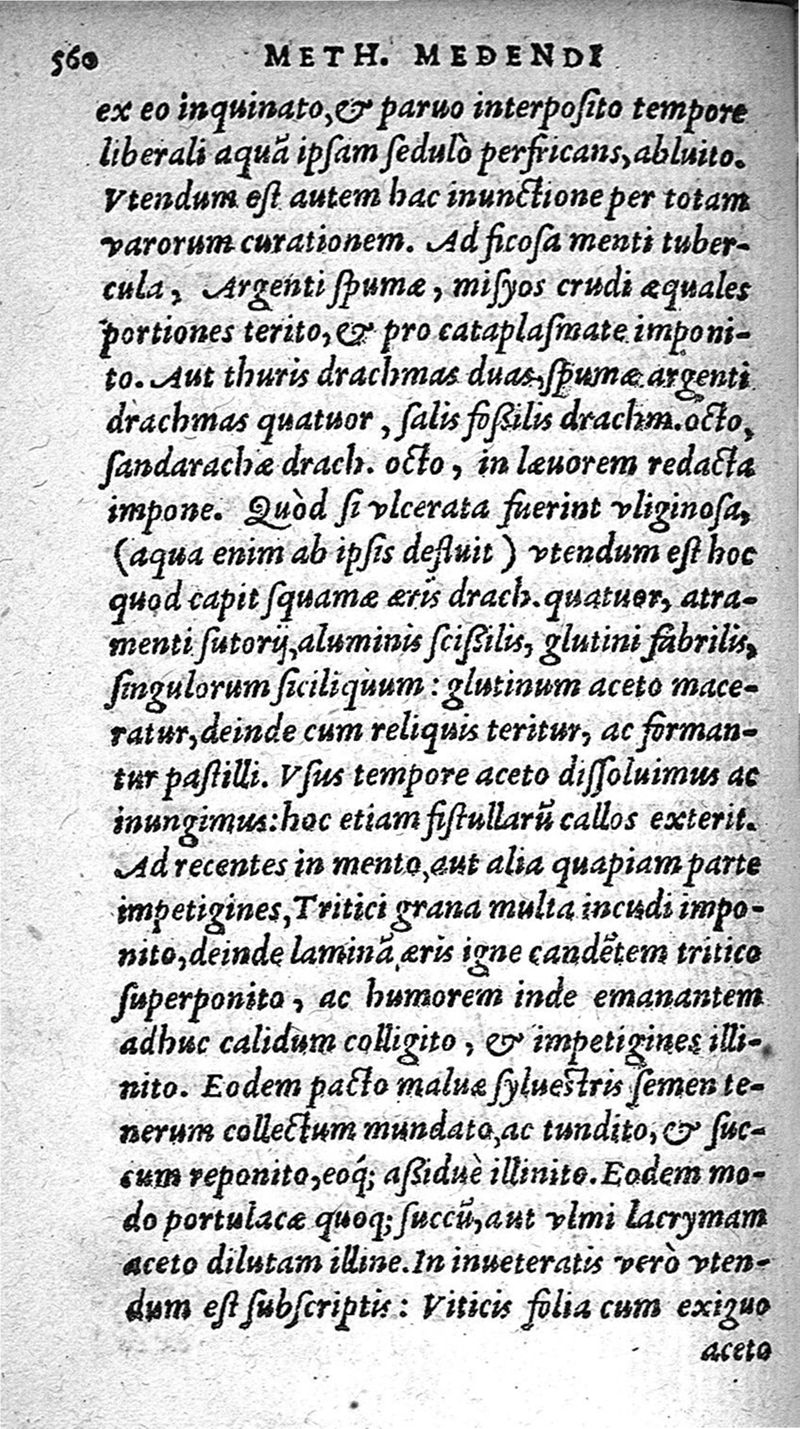 560 METH. MEDENDI
ex eo inquinato, & paruo interposito tempore
liberali aquã ipsam sedulò perfricans, abluito.
Vtendum est autem hac inunctione per totam
varorum curationem. Ad ficosa menti tuber-
cula, Argenti spumæ, misyos crudi æquales
portiones terito, & pro cataplasmate imponi-
to. Aut thuris drachmas duas, spumæ argenti
drachmas quatuor, salis fossilis drachm. octo,
sandarachæ drach. octo, in læuorem redacta
impone. Quòd si vlcerata fuerint vliginosa,
(aqua enim ab ipsis defluit) vtendum est hoc
quod capit squamæ æris drach. quatuor, atra-
menti sutorij, aluminis scissilis, glutini fabrilis,
singulorum siciliquum: glutinum aceto mace-
ratur, deinde cum reliquis teritur, ac forman-
tur pastilli. Vsus tempore aceto dissoluimus ac
inungimus: hoc etiam fistullarũ callos exterit.
Ad recentes in mento, aut alia quapiam parte
impetigines, Tritici grana multa incudi impo-
nito, deinde laminã æris igne candẽtem tritico
superponito, ac humorem inde emanantem
adhuc calidum colligito, & impetigines illi-
nito. Eodem pacto maluæ syluestris semen te-
nerum collectum mundato, ac tundito, & suc-
cum reponito, eoq́; assiduè illinito. Eodem mo-
do portulacæ quoq; succũ, aut vlmi lacrymam
aceto dilutam illine. In inueteratis verò vten-
dum est subscriptis: Viticis folia cum exiguo
aceto